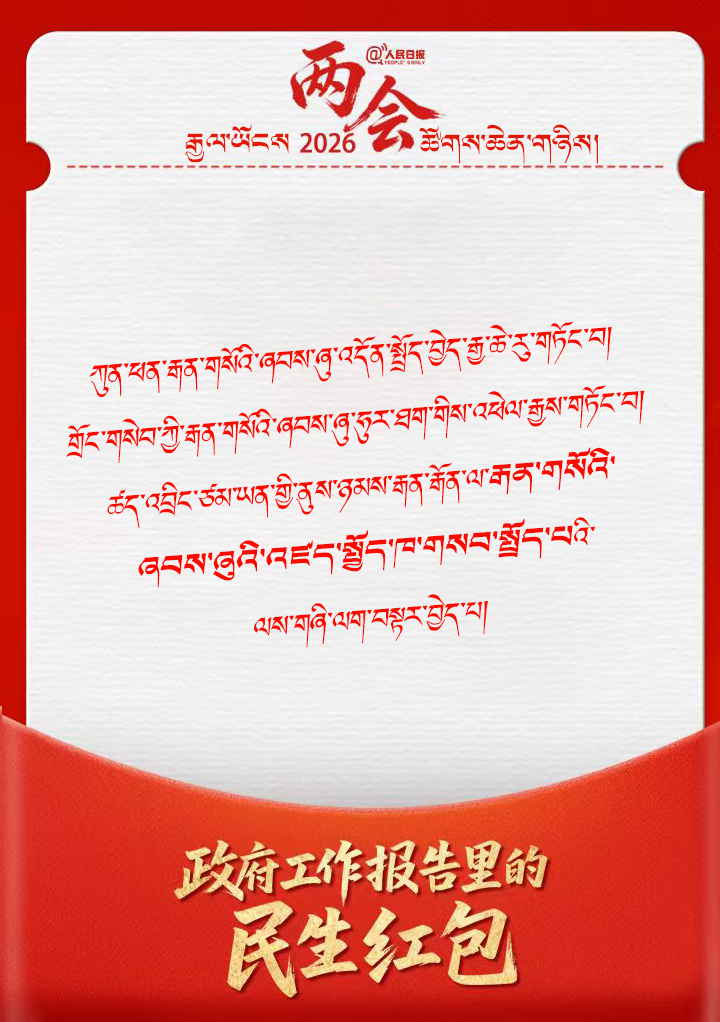 两会
@人民日报
PEOPLE'S DAILY
རྒྱལ་ཡོངས 2026 ཚོགས་ཆེན་གཉིས།
ཀུན་ཕན་རྒན་གསོའི་ཞབས་ཞུ་འདོན་སྤྲོད་བྱེད་རྒྱ་ཆེ་རུ་གཏོང་བ།
གྲོང་གསེབ་ཀྱི་རྒན་གསོའི་ཞབས་ཞུ་ཧུར་ཐག་གིས་འཕེལ་རྒྱས་གཏོང་བ།
ཚད་འབྲིང་ཙམ་ཡན་གྱི་ནུས་ཉམས་རྒན་གོན་ལ་རྒན་གསོའི་
ཞབས་ཞུའི་འཛད་སྤྱོད་ཁ་གསབ་སྤྲོད་པའི་
ལས་གཞི་ལག་བསྟར་བྱེད་པ།
政府工作报告里的
民生红包